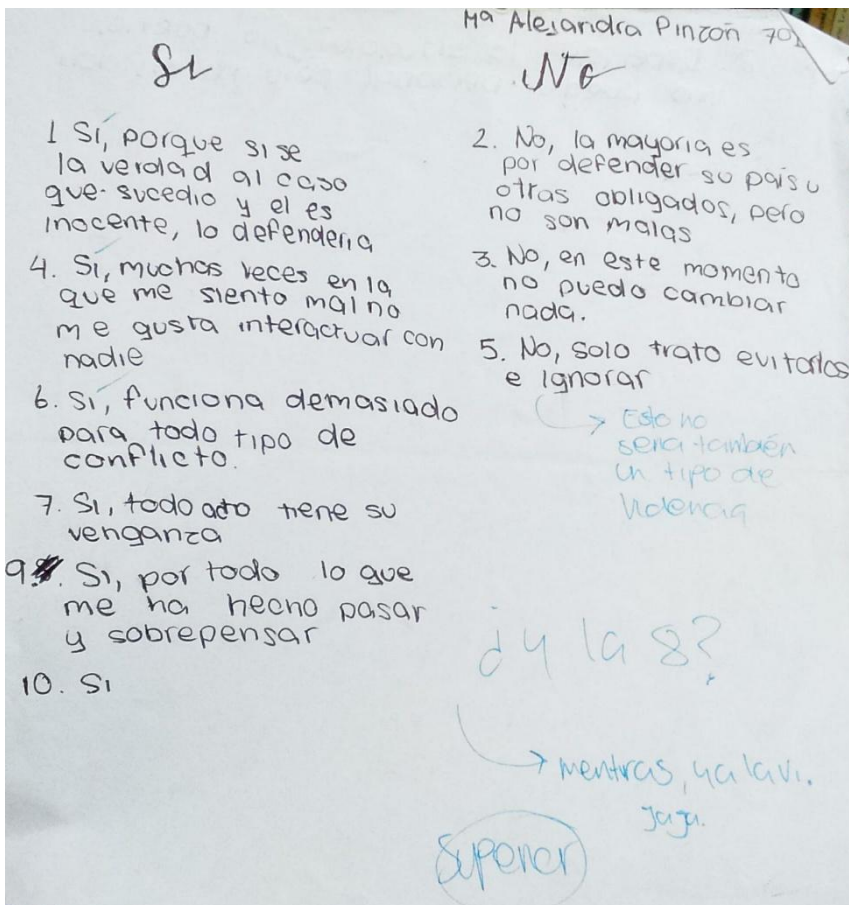 Mª Alejandra Pinzón 702
Si
1 Sí, porque si se
la verdad al caso
que sucedio y el es
inocente, lo defenderia
4. Si, muchas veces en la
que me siento mal no
me gusta interactuar con
nadie
6. Si, funciona demasiado
para todo tipo de
conflicto.
7. Si, todo acto tiene su
venganza
9. Si, por todo lo que
me ha hecho pasar
y sobrepensar
10. Si
No
2. No, la mayoria es
por defender su pais u
otras obligados, pero
no son malas
3. No, en este momento
no puedo cambiar
nada.
5. No, solo trato evitarlos
e ignorar
Esto no
seria también
un tipo de
violencia
¿y la 8?
mentiras, ya la vi.
jaja.
Superior